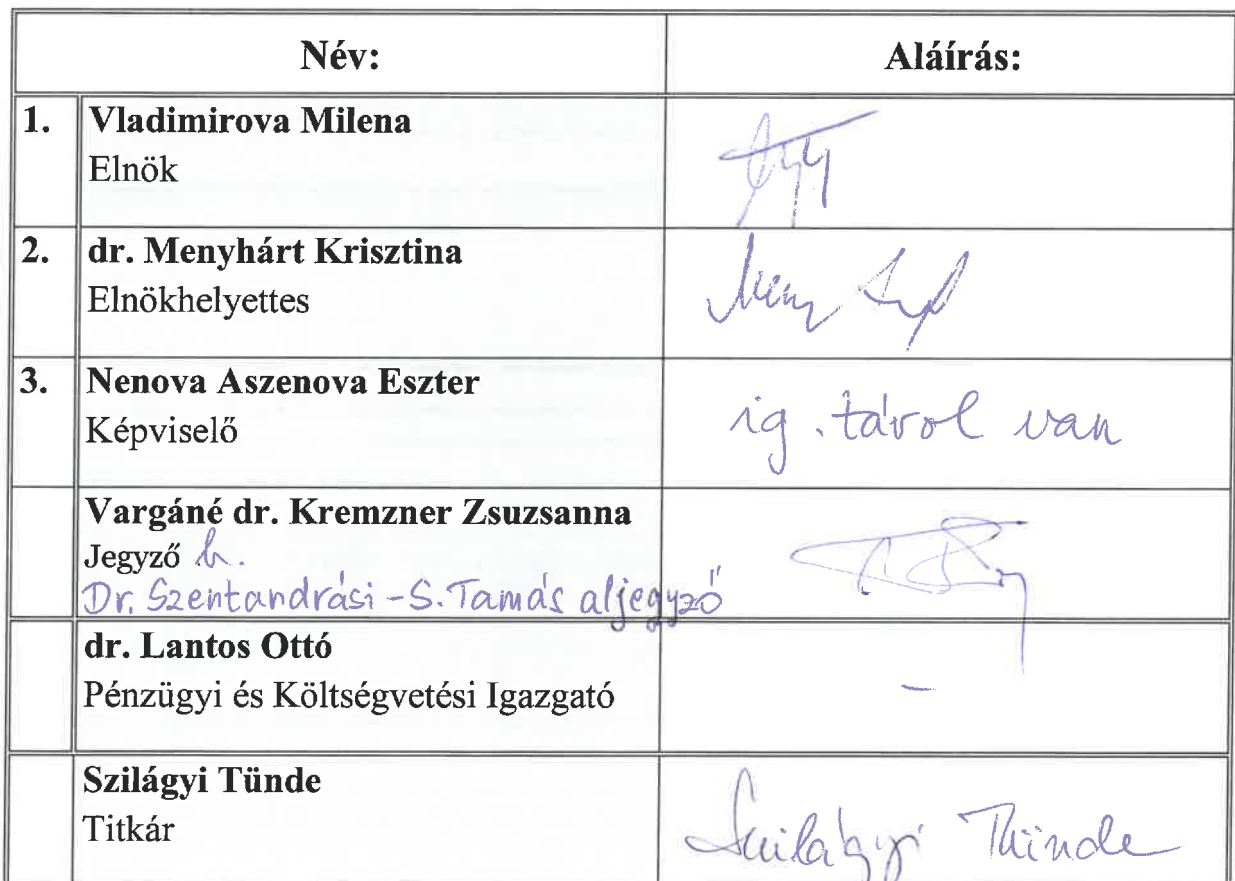 Név:
Aláírás:
1. Vladimirova Milena
Elnök
2. dr. Menyhárt Krisztina
Elnökhelyettes
3. Nenova Aszenova Eszter
Képviselő
ig. távol van
Vargáné dr. Kremzner Zsuzsanna
Jegyző h.
Dr. Szentandrási-S. Tamás aljegyző
dr. Lantos Ottó
Pénzügyi és Költségvetési Igazgató
-
Szilágyi Tünde
Titkár
Szilágyi Tünde